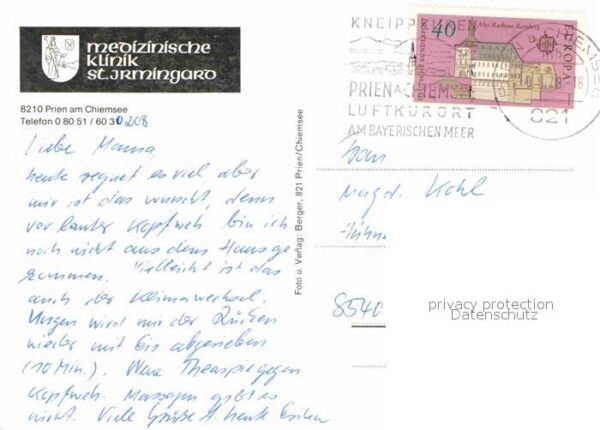 medizinische
klinik
st. irmingard
8210 Prien am Chiemsee
Telefon 0 80 51 / 60 3
Liebe Mama,
heute regnet es viel aber
mir ist das wurscht, denn
vor lauter Kopfweh bin ich
noch nicht aus dem Haus ge
kommen. Vielleicht ist das
auch der Klimawechsel.
Morgen wird mir der Rücken
wieder mit Eis abgerieben
(10 Min.). Wenn gegen
Kopfweh. Massagen gibt es
nicht. Viele Grüße heute
Foto u. Verlag: Berger, 821 Prien/Chiemsee
KNEIPP
PRIEN A. CHIEMSEE
LUFTKURORT
AM BAYERISCHEN MEER
40
Altes Rathaus Bamberg
DEUTSCHE BUNDESPOST
EUROPA
CHIEMSEE
821
Frau
Magd. Kohl
8540
privacy protection
Datenschutz